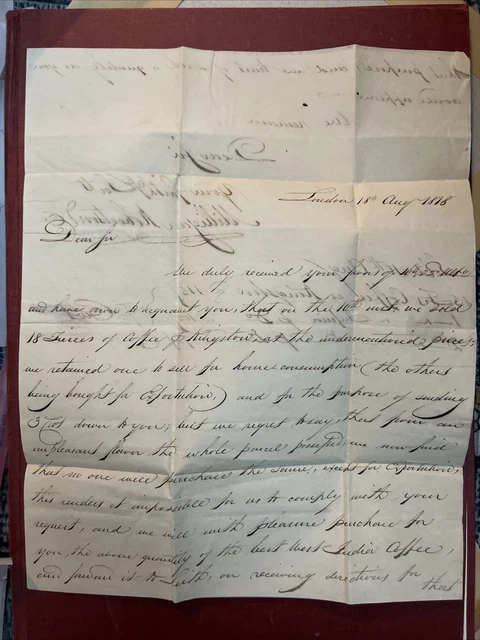 London 18th Aug 1818
Dear Sir
We duly received your favor of
and have now to acquaint you, that on the 10th inst. we sold
18 Tierces of Coffee p Kingston, at the undermentioned prices;
we retained one to sell for home consumption (the others
being bought for Exportation,) and for the purpose of sending
3 Cwt down to you; but we regret to say, that from an
unpleasant flavor the whole parcel possessed, we now find
that no one will purchase the same, except for Exportation,
this renders it impossible for us to comply with your
request, and we will with pleasure purchase for
you, the above quantity of the best West India Coffee,
and forward it to Leith, on receiving directions for
that